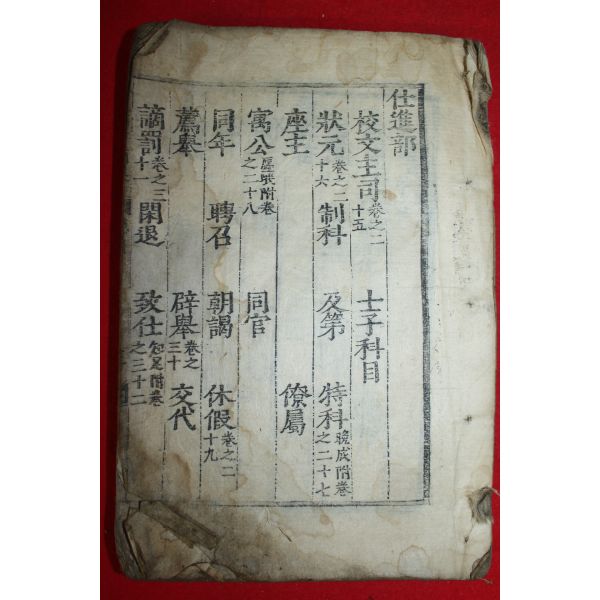 仕進部
校文主司卷之二十五 士子科目
狀元卷之二十六 制科 及第 特科晚成附卷之二十七
座主 僚屬
寓公歷聘附卷之二十八 同官
同年 聘召 朝謁 休假卷之二十九
薦舉 辟舉卷之三十 交代
謫罰卷之三十一 閑退 致仕知足附卷之三十二